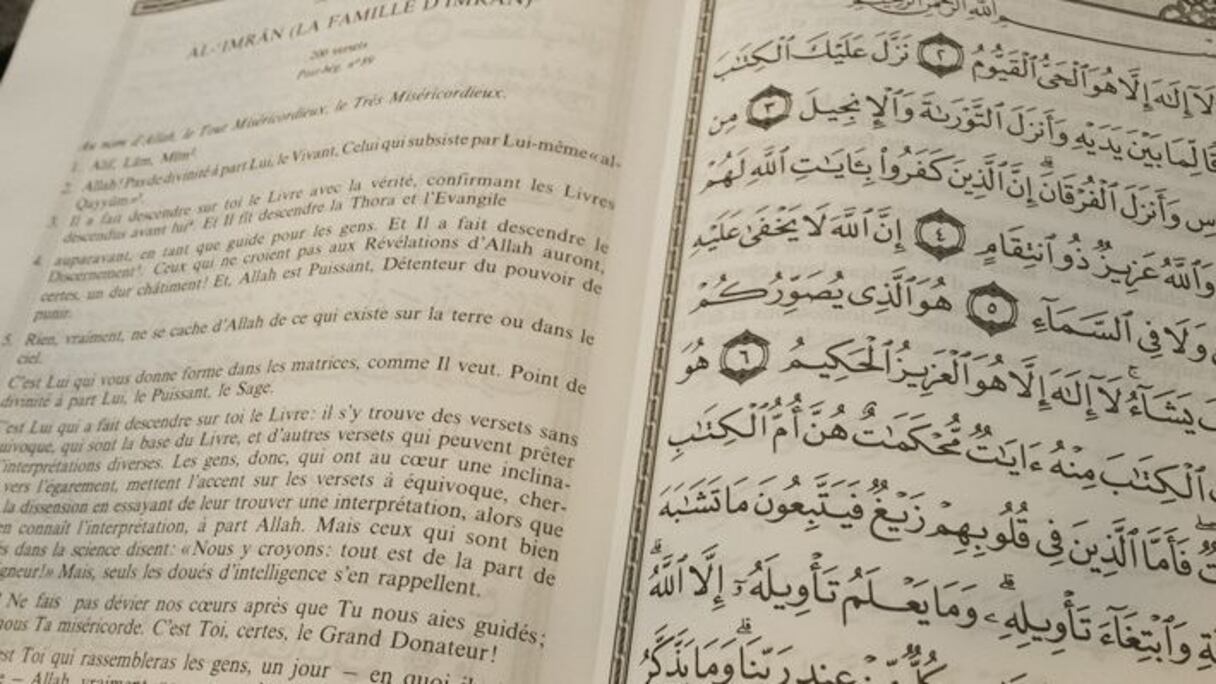 AL-'IMRÂN (LA FAMILLE D'IMRÂN)
200 versets
Post-hég. n° 89
Au nom d'Allah, le Tout Miséricordieux, le Très Miséricordieux.
1. Alif, Lâm, Mîm².
2. Allah! Pas de divinité à part Lui, le Vivant, Celui qui subsiste par Lui-même «al-
Qayyûm»³.
3. Il a fait descendre sur toi le Livre avec la vérité, confirmant les Livres
descendus avant lui⁴. Et Il fit descendre la Thora et l'Evangile
4. auparavant, en tant que guide pour les gens. Et Il a fait descendre le
Discernement⁵. Ceux qui ne croient pas aux Révélations d'Allah auront,
certes, un dur châtiment! Et, Allah est Puissant, Détenteur du pouvoir de
punir.
5. Rien, vraiment, ne se cache d'Allah de ce qui existe sur la terre ou dans le
ciel.
C'est Lui qui vous donne forme dans les matrices, comme Il veut. Point de
divinité à part Lui, le Puissant, le Sage.
est Lui qui a fait descendre sur toi le Livre: il s'y trouve des versets sans
uivoque, qui sont la base du Livre, et d'autres versets qui peuvent prêter
interprétations diverses. Les gens, donc, qui ont au cœur une inclina-
vers l'égarement, mettent l'accent sur les versets à équivoque, cher-
la dissension en essayant de leur trouver une interprétation, alors que
en connaît l'interprétation, à part Allah. Mais ceux qui sont bien
dans la science disent: «Nous y croyons: tout est de la part de
gneur!» Mais, seuls les doués d'intelligence s'en rappellent.
Ne fais pas dévier nos cœurs après que Tu nous aies guidés;
nous Ta miséricorde. C'est Toi, certes, le Grand Donateur!
est Toi qui rassembleras les gens, un jour — en quoi il
– Allah, vraiment
ٱللَّهِ ٱلرَّحْمَٰنِ ٱلرَّحِيمِ
لَآ إِلَٰهَ إِلَّا هُوَ ٱلْحَىُّ ٱلْقَيُّومُ ٢ نَزَّلَ عَلَيْكَ ٱلْكِتَٰبَ
قًا لِّمَا بَيْنَ يَدَيْهِ وَأَنزَلَ ٱلتَّوْرَىٰةَ وَٱلْإِنجِيلَ ٣ مِن
سِ وَأَنزَلَ ٱلْفُرْقَانَ ۗ إِنَّ ٱلَّذِينَ كَفَرُوا۟ بِـَٔايَٰتِ ٱللَّهِ لَهُمْ
وَٱللَّهُ عَزِيزٌ ذُو ٱنتِقَامٍ ٤ إِنَّ ٱللَّهَ لَا يَخْفَىٰ عَلَيْهِ
وَلَا فِى ٱلسَّمَآءِ ٥ هُوَ ٱلَّذِى يُصَوِّرُكُمْ
يَشَآءُ ۚ لَآ إِلَٰهَ إِلَّا هُوَ ٱلْعَزِيزُ ٱلْحَكِيمُ ٦ هُوَ
ٱلْكِتَٰبَ مِنْهُ ءَايَٰتٌ مُّحْكَمَٰتٌ هُنَّ أُمُّ ٱلْكِتَٰبِ
تٌ ۖ فَأَمَّا ٱلَّذِينَ فِى قُلُوبِهِمْ زَيْغٌ فَيَتَّبِعُونَ مَا تَشَٰبَهَ
ةِ وَٱبْتِغَآءَ تَأْوِيلِهِۦ ۗ وَمَا يَعْلَمُ تَأْوِيلَهُۥٓ إِلَّا ٱللَّهُ ۗ
كُلٌّ مِّنْ عِندِ رَبِّنَا ۗ وَمَا يَذَّكَّرُ